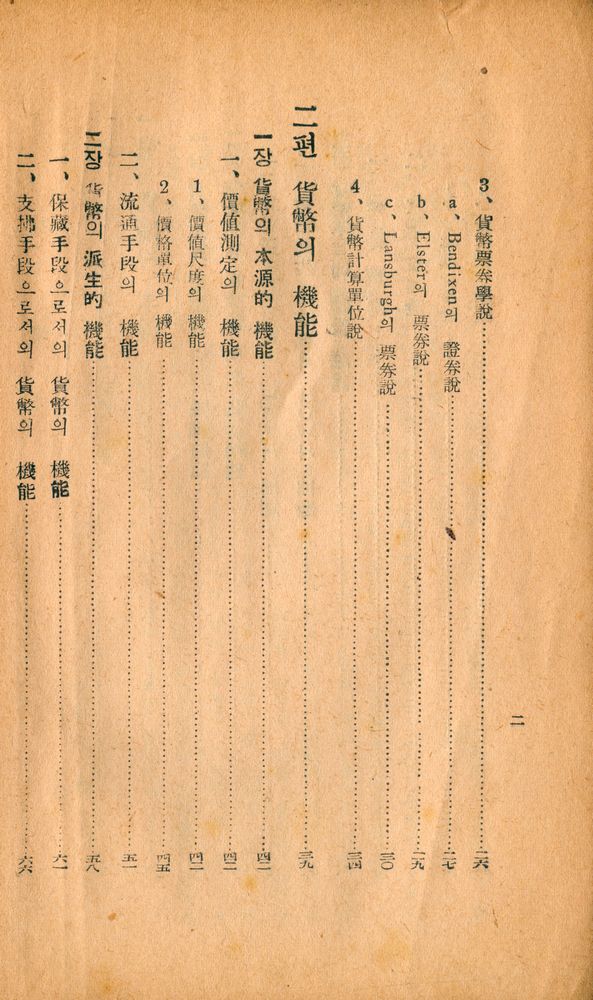 二
3、貨幣票券學說……二六
a、Bendixen의 證券說……二七
b、Elster의 票券說……二九
c、Lansburgh의 票券說……三〇
4、貨幣計算單位說……三四
二편 貨幣의 機能……三九
一장 貨幣의 本源的 機能……四二
一、價値測定의 機能……四二
1、價値尺度의 機能……四二
2、價格單位의 機能……四五
二、流通手段의 機能……五一
二장 貨幣의 派生的 機能……五八
一、保藏手段으로서의 貨幣의 機能……六一
二、支拂手段으로서의 貨幣의 機能……六六